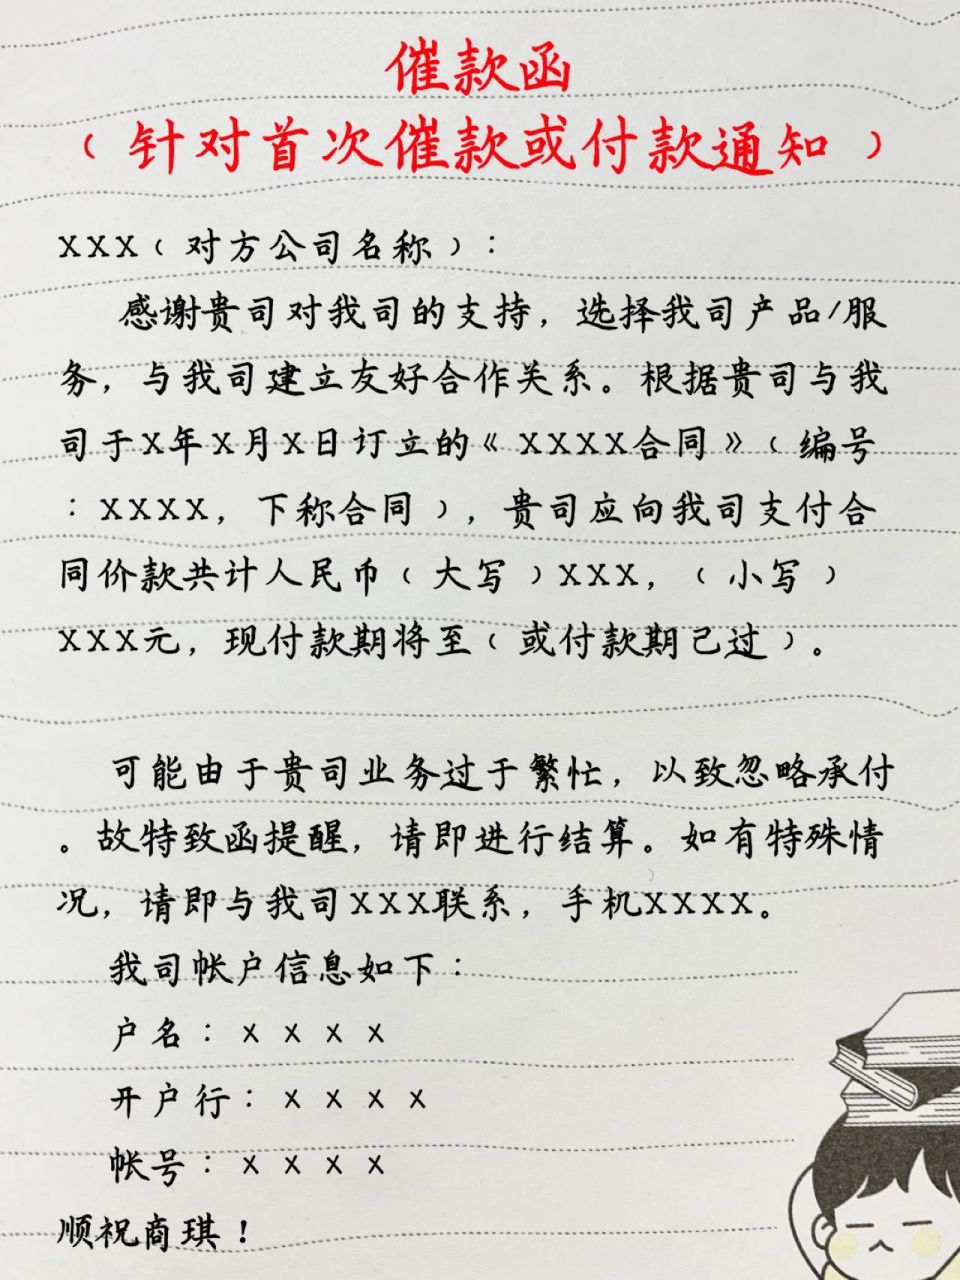 催款函
（针对首次催款或付款通知）
XXX（对方公司名称）：
感谢贵司对我司的支持，选择我司产品/服
务，与我司建立友好合作关系。根据贵司与我
司于X年X月X日订立的《XXXX合同》（编号
：XXXX，下称合同），贵司应向我司支付合
同价款共计人民币（大写）XXX，（小写）
XXX元，现付款期将至（或付款期己过）。
可能由于贵司业务过于繁忙，以致忽略承付
。故特致函提醒，请即进行结算。如有特殊情
况，请即与我司XXX联系，手机XXXX。
我司帐户信息如下：
户名：x x x x
开户行：x x x x
帐号：x x x x
顺祝商琪！